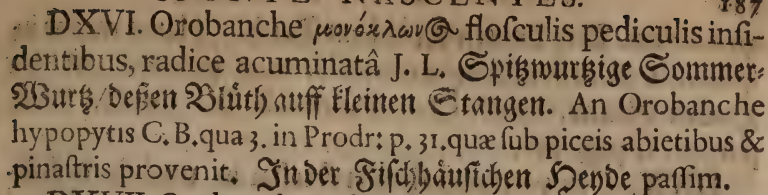 187
DXVI. Orobanche μονόκλων@ floſculis pediculis inſi-
dentibus, radice acuminatâ J. L. Spitzwurtzige Sommer-
Wurtz/deßen Blüth auff kleinen Stangen. An Orobanche
hypopytis C. B. qua 3. in Prodr: p. 31. quæ ſub piceis abietibus &
pinaſtris provenit. In der Fiſchhäuſichen Heyde paſſim.